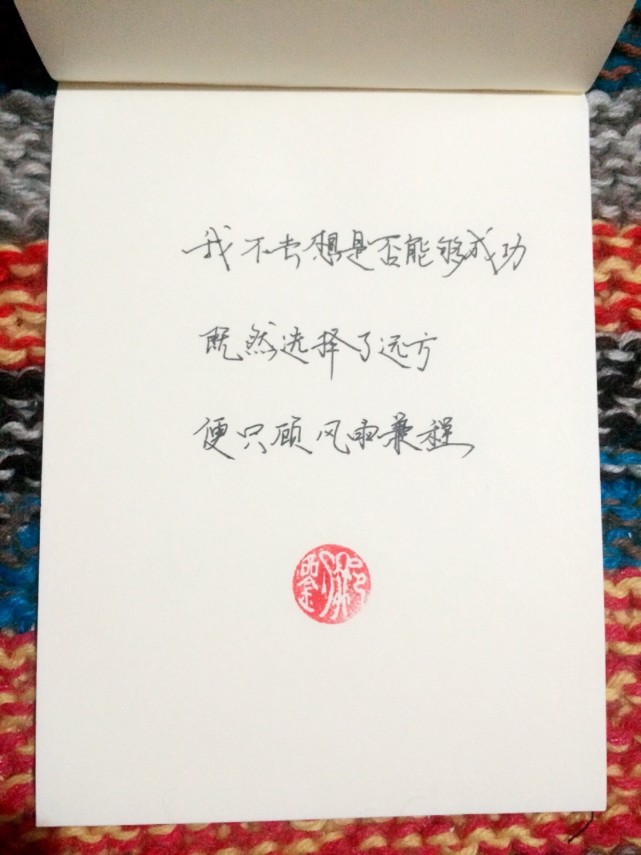 我不去想是否能够成功
既然选择了远方
便只顾风雨兼程